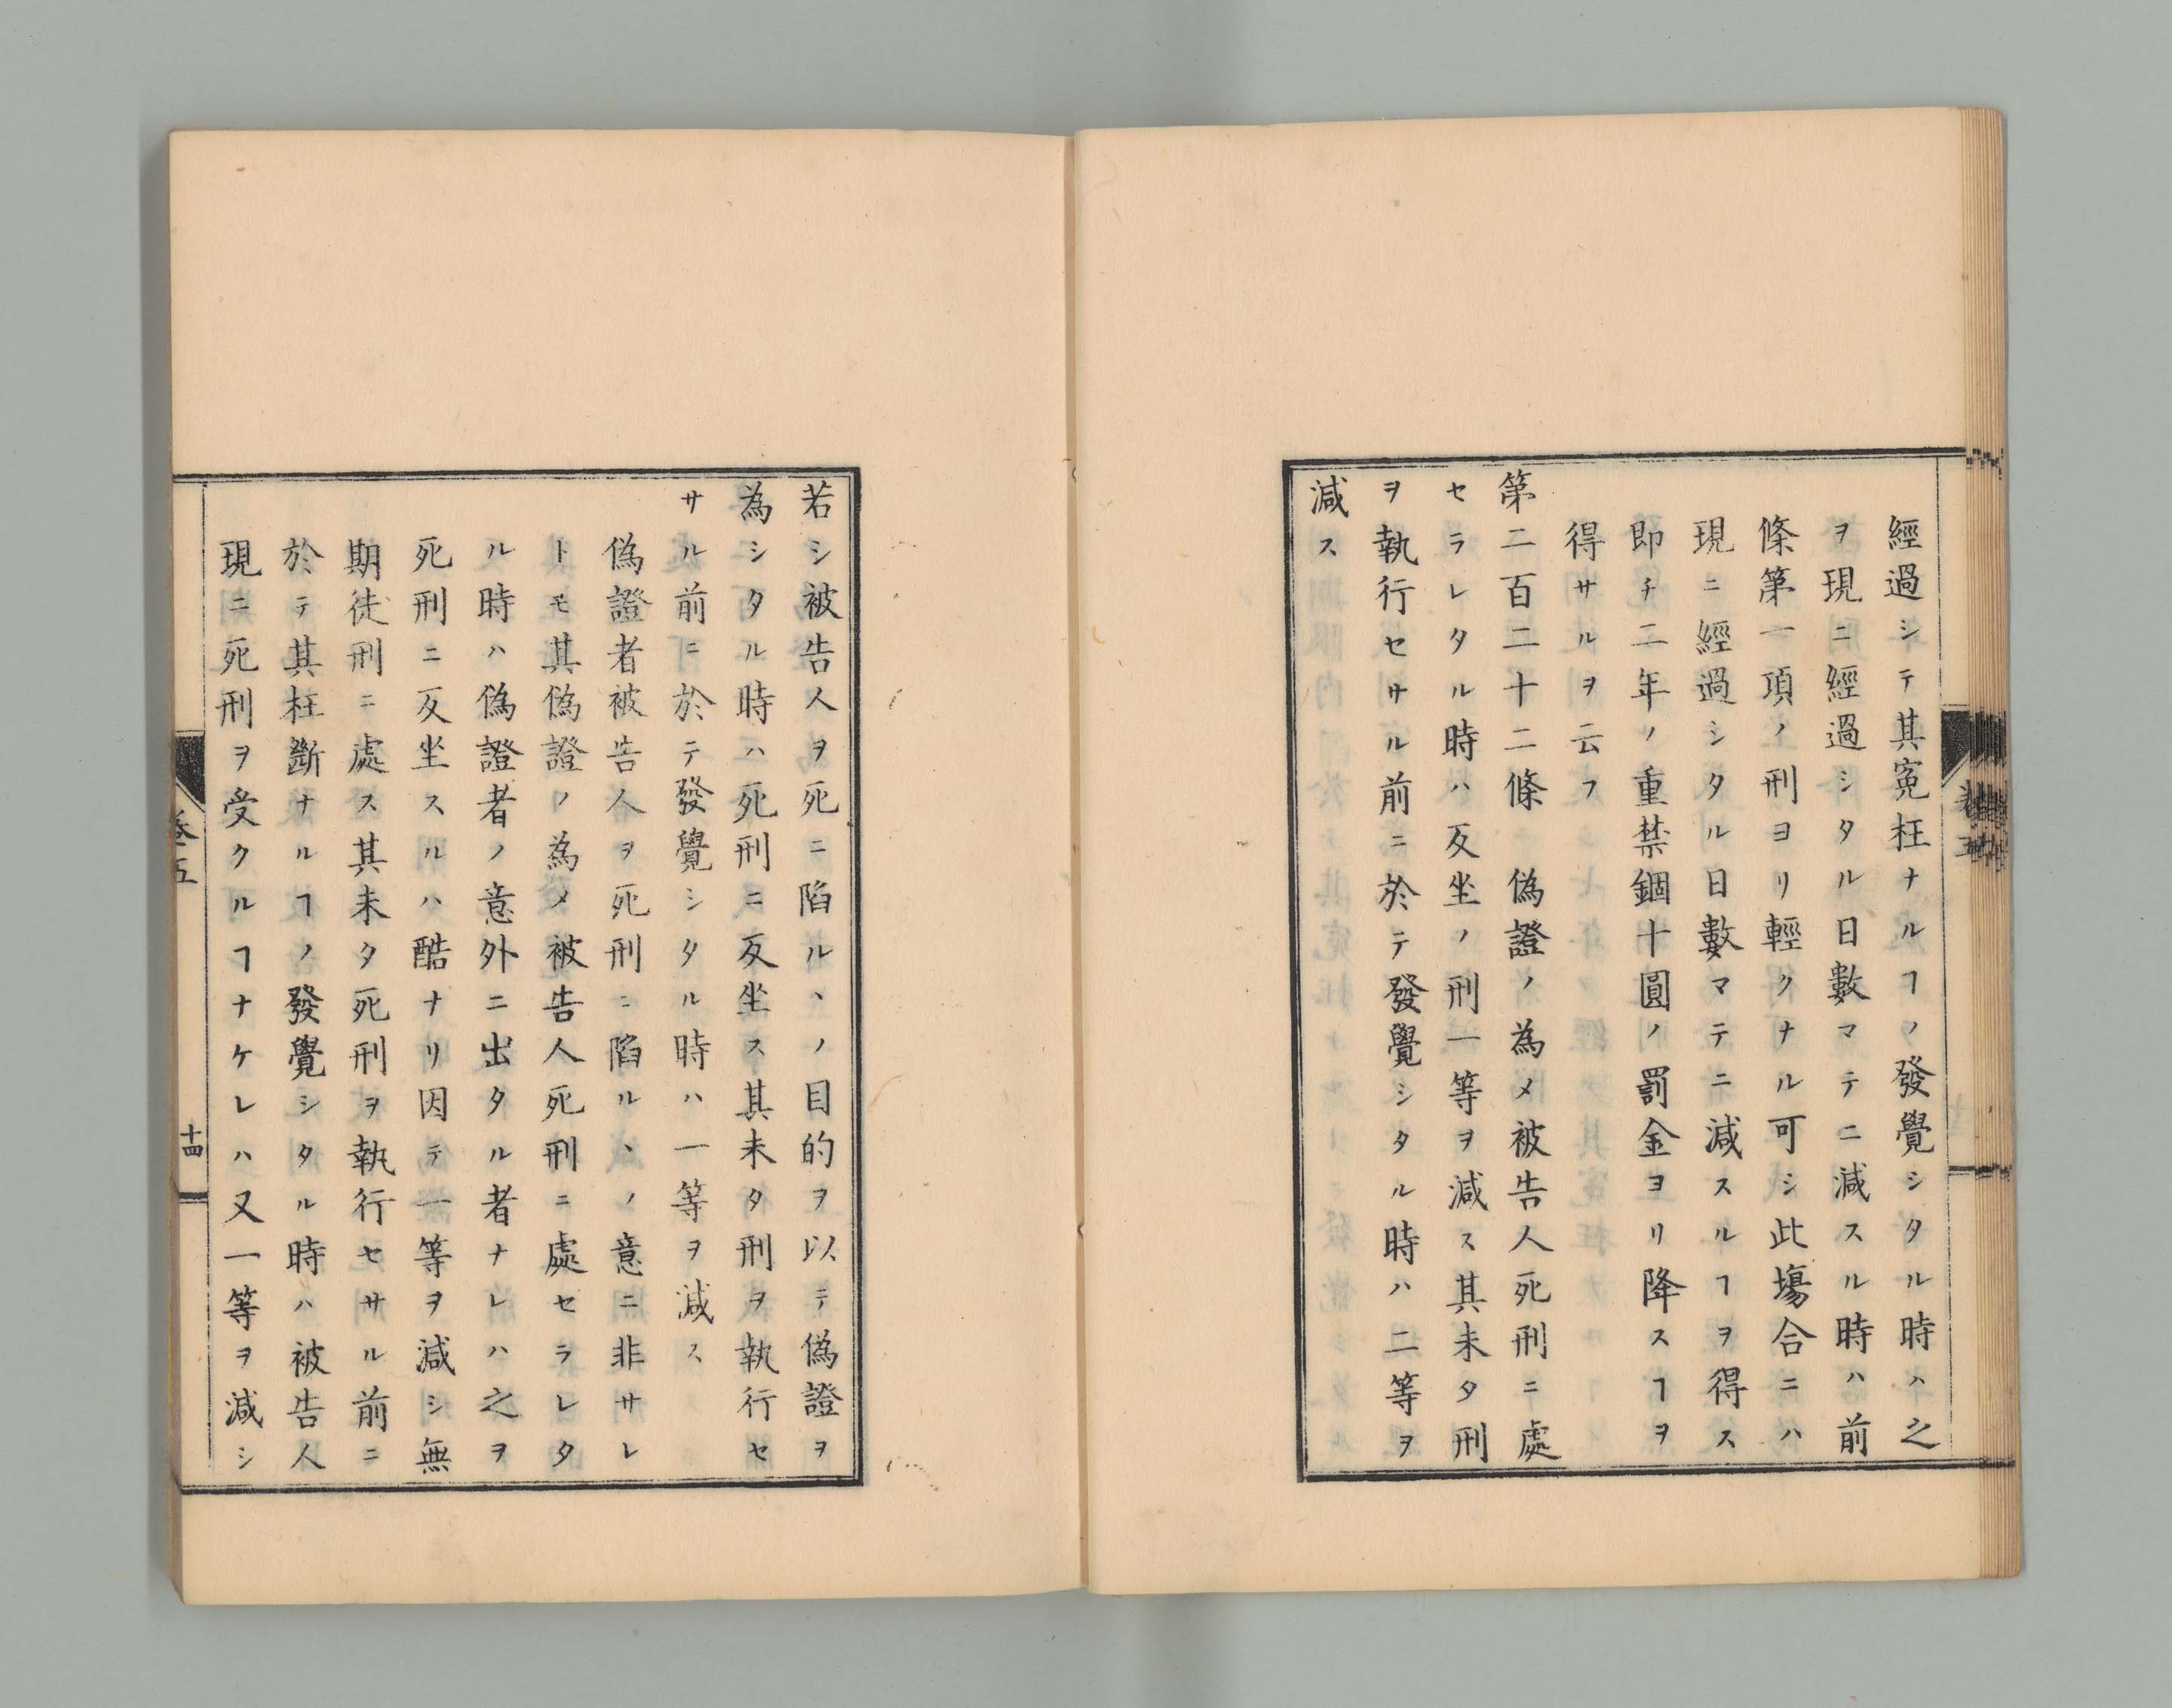 經過シテ其寃枉ナルヿノ發覺シタル時ハ之
ヲ現ニ經過シタル日數マテニ減スル時ハ前
條第一項ノ刑ヨリ輕クナル可シ此塲合ニハ
現ニ經過シタル日數マテニ減スルヿヲ得ス
即チ二年ノ重禁錮十圓ノ罰金ヨリ降スヿヲ
得サルヲ云フ
第二百二十二條 偽證ノ為メ被告人死刑ニ處
セラレタル時ハ反坐ノ刑一等ヲ減ス其未タ刑
ヲ執行セサル前ニ於テ發覺シタル時ハ二等ヲ
減ス
若シ被告人ヲ死ニ陷ルヽノ目的ヲ以テ偽證ヲ
為シタル時ハ死刑ニ反坐ス其未タ刑ヲ執行セ
サル前ニ於テ發覺シタル時ハ一等ヲ減ス
偽證者被告人ヲ死刑ニ陷ルヽノ意ニ非サレ
トモ其偽證ノ為メ被告人死刑ニ處セラレタ
ル時ハ偽證者ノ意外ニ出タル者ナレハ之ヲ
死刑ニ反坐スルハ酷ナリ因テ一等ヲ減シ無
期徒刑ニ處ス其未タ死刑ヲ執行セサル前ニ
於テ其枉斷ナルヿノ發覺シタル時ハ被告人
現ニ死刑ヲ受クルヿナケレハ又一等ヲ減シ
卷五
十四